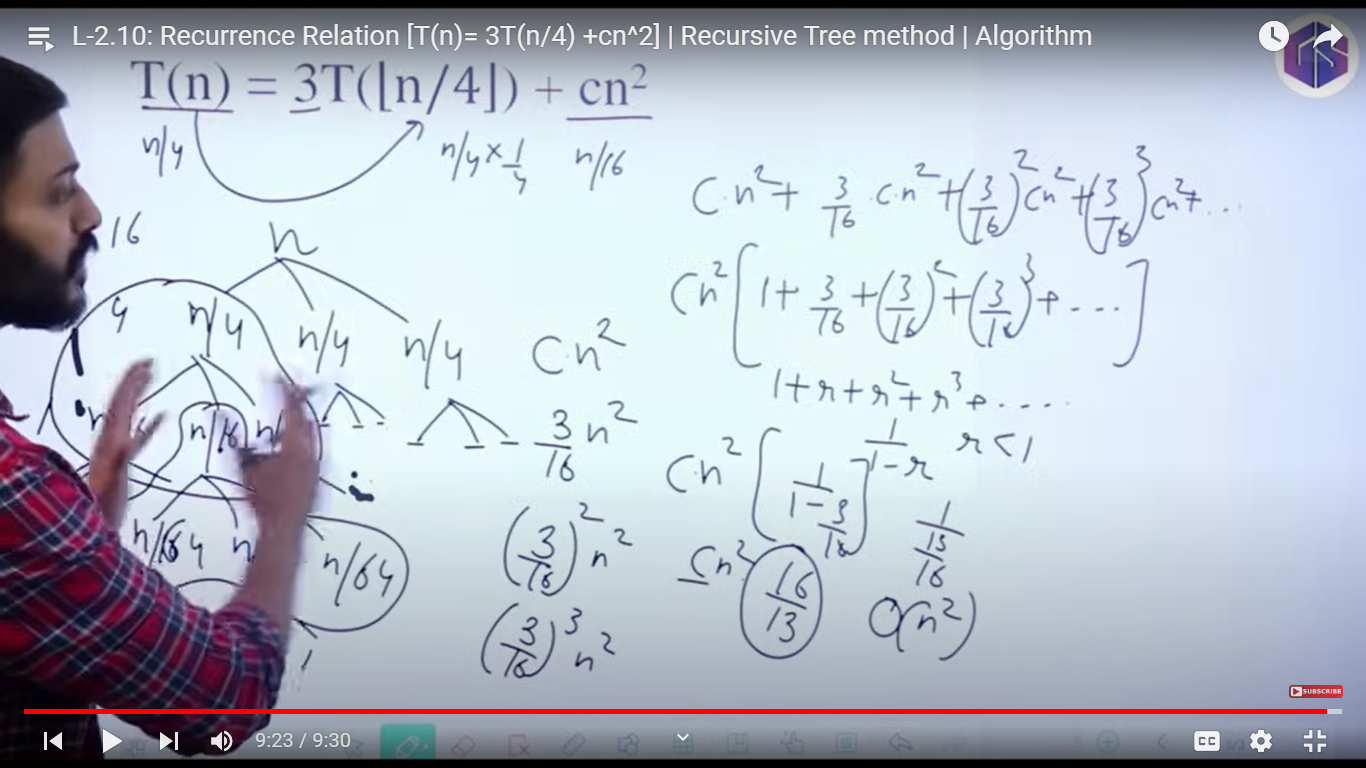 L-2.10: Recurrence Relation [T(n)= 3T(n/4) +cn^2] | Recursive Tree method | Algorithm
T(n) = 3T(⌊n/4⌋) + cn²
n/4
n/4 × 1/4
n/16
16
n
4
n/4
n/4
n/4
n/16
n/64
n/64
Cn²
3/16 n²
(3/16)² n²
(3/16)³ n²
C·n² + 3/16 ·cn² + (3/16)² cn² + (3/16)³ cn² + ...
Cn² [1 + 3/16 + (3/16)² + (3/16)³ + ....]
1 + r + r² + r³ + ....
1/1-r r<1
Cn² [1/1-3/16]
1/13/16
Cn² 16/13
O(n²)
SUBSCRIBE
9:23 / 9:30
CC